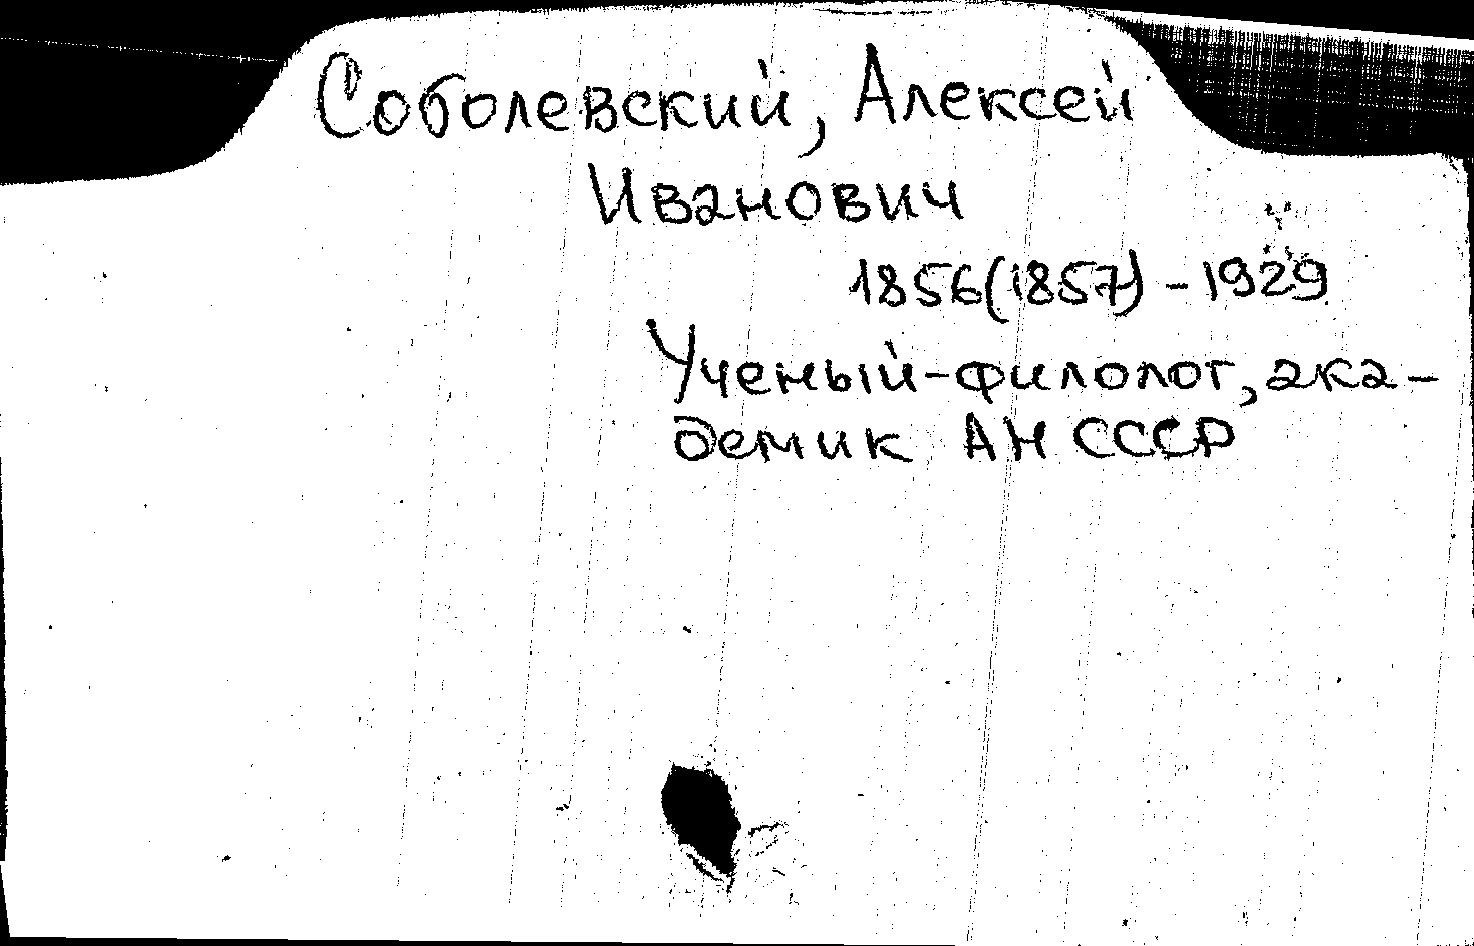 Соболевский, Алексей
Иванович
1856(1857) - 1929
Ученый-филолог, ака-
демик АН СССР